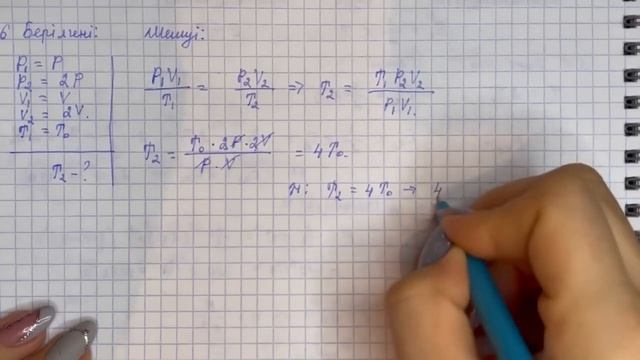 6 Берілгені:
Шешуі:
P₁ = P
P₂ = 2P
V₁ = V
V₂ = 2V.
T₁ = T₀
T₂ - ?
P₁V₁ / T₁ = P₂V₂ / T₂ => T₂ = T₁ P₂ V₂ / P₁ V₁.
T₂ = T₀ · 2P · 2V / P · V = 4T₀.
Ж: T₂ = 4T₀ → 4